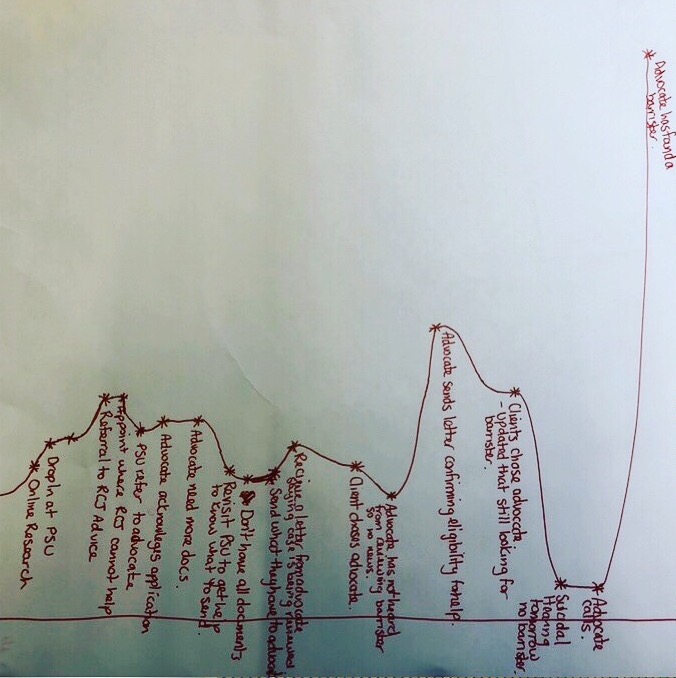 Online Research
Drop In at PSU
Referral to RCJ Advice
Appoint where RCJ cannot help
PSU refer to advocate
Advocate acknowleges application
Advocate need more docs.
Revisit PSU to get help
to know what to send.
Don't have all documents
Send what they have to advocate
Recieve a letter from advocate
saying case is being reviewed
Client chases advocate.
Advocate has not heard
from reviewing barrister
so no news.
Advocate sends letter confirming eligibility for help.
Clients chose advocate.
- updated that still looking for
barrister.
Suicidal
Hearing
tomorrow
no barrister.
Advocate
calls.
Advocate has fand a
barrister.